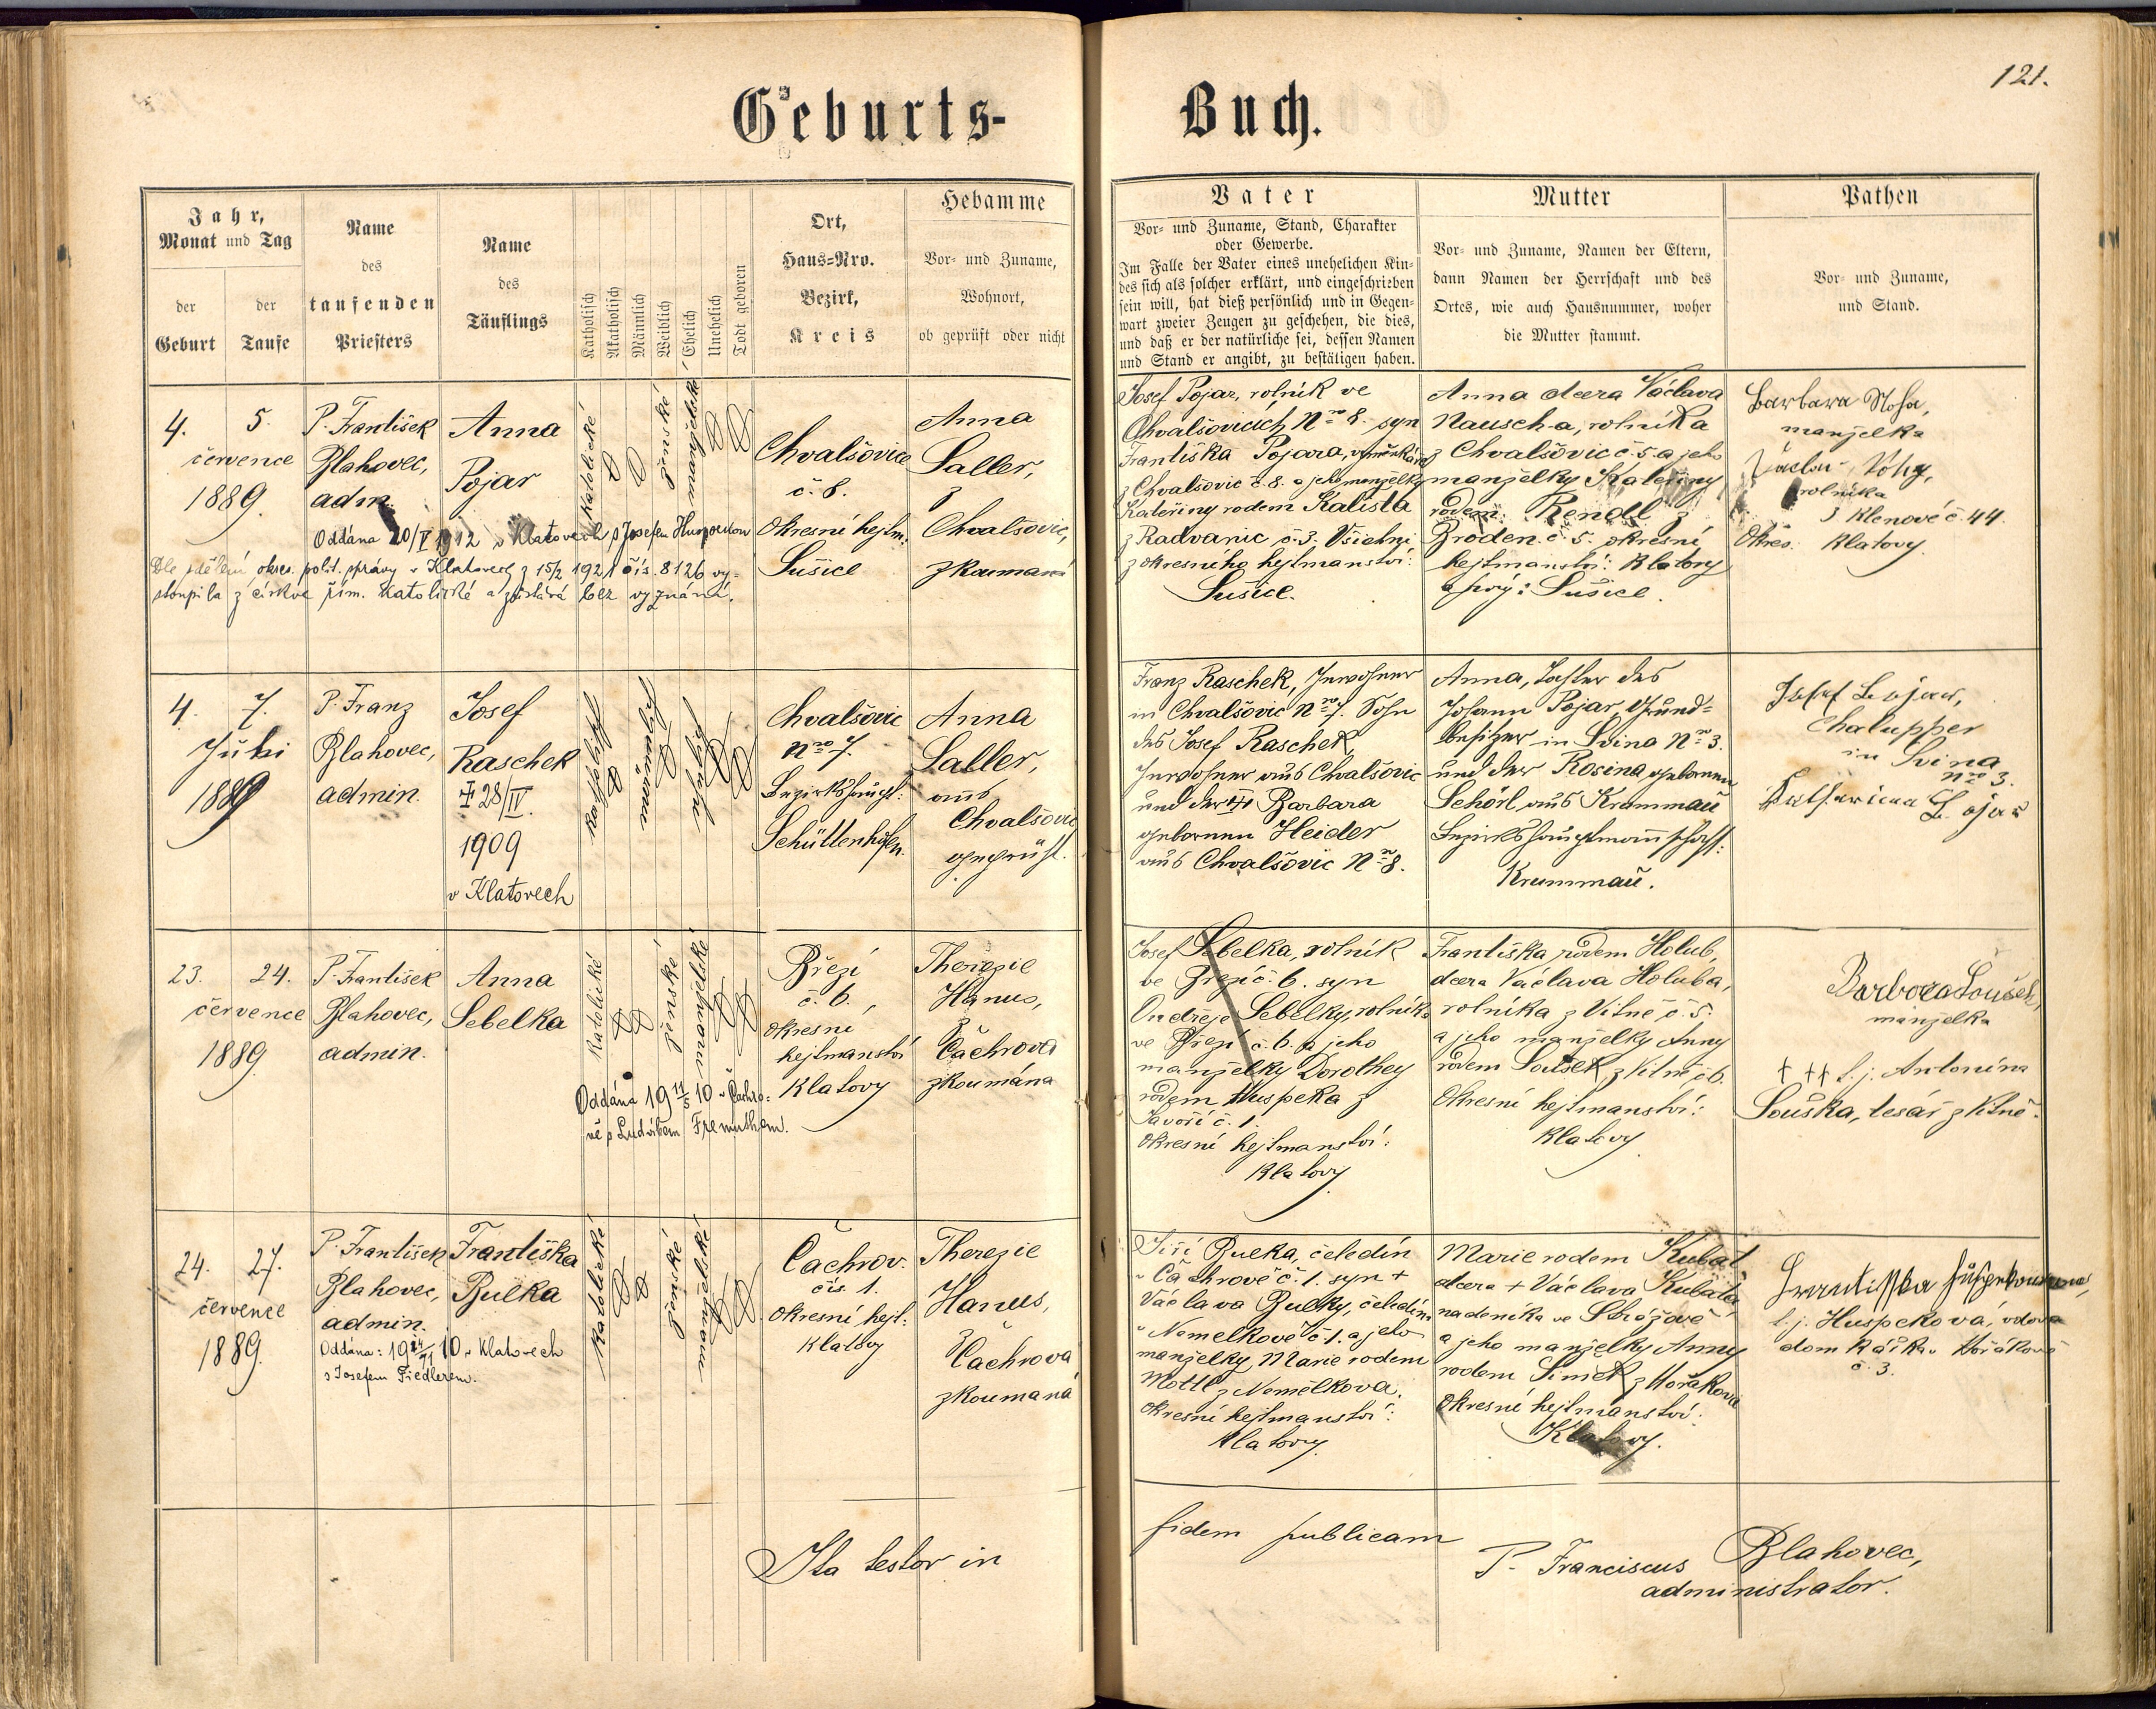 121.
Geburts-Buch.
Jahr, Monat und Tag
der Geburt
der Taufe
Name des taufenden Priesters
Name des Täuflings
Katholisch
Akatholisch
Männlich
Weiblich
Ehelich
Unehelich
Todt geboren
Ort,
Haus=Nro.
Bezirk,
Kreis
Hebamme
Vor- und Zuname,
Wohnort,
ob geprüft oder nicht
Vater
Vor- und Zuname, Stand, Charakter
oder Gewerbe.
Im Falle der Vater eines unehelichen Kin-
des sich als solcher erklärt, und eingeschrieben
sein will, hat dieß persönlich und in Gegen-
wart zweier Zeugen zu geschehen, die dies,
und daß er der natürliche sei, dessen Namen
und Stand er angibt, zu bestätigen haben.
Mutter
Vor- und Zuname, Namen der Eltern,
dann Namen der Herrschaft und des
Ortes, wie auch Hausnummer, woher
die Mutter stammt.
Pathen
Vor- und Zuname,
und Stand.
4. 5.
července
1889.
P. František
Blahovec,
adm.
Anna
Pojar
Oddána 20/V 1912 v Klatovech s Josefem
Dle sdělení okres. polit. správy v Klatovech z 15/2 1921 čís. 8126 vy-
stoupila z církve řím. katolické a zůstává bez vyznání.
katolické
ženské
manželské
Chvalšovice
č. 8.
Okresní hejtm:
Sušice
Anna
Saller,
z
Chvalšovic,
zkoumaná
Josef Pojar, rolník ve
Chvalšovicích Nro 8. syn
Františka Pojara, výměnkáře
z Chvalšovic č. 8. a jeho manželky
Kateřiny rodem Kalista
z Radvanic č. 3. Všichni
z okresního hejtmanství:
Sušice.
Anna dcera Václava
Nausch-a, rolníka
z Chvalšovic č. 5. a jeho
manželky Kateřiny
rodem Rendl z
Broden č. 5. okresní
hejtmanství: Klatovy
a prvý: Sušice.
Barbara
manželka
Václav
rolníka
z Klenové č. 44.
Okres. Klatovy.
4. 7.
Juli
1889
P. Franz
Blahovec,
admin.
Josef
Raschek
28/IV.
1909
v Klatovech
katholisch
männlich
ehelich
Chvalšovic
Nro 7.
Bezirkshaupt:
Schüttenhofen.
Anna
Saller,
aus
Chvalšovic
geprüft.
Franz Raschek, Inwohner
in Chvalšovic Nro 7. Sohn
des Josef Raschek,
Inwohner aus Chvalšovic
und der Barbara
gebornen Heider
aus Chvalšovic Nro 8.
Anna, Tochter des
Johann Pojar, Grund-
besitzer in Svina Nro 3.
und der Rosina gebornen
Schörl aus Krummau
Bezirkshauptmannschaft:
Krummau.
Josef Bojar,
Chalupper
in Svina
Nro 3.
Katharina Bojar
23. 24.
července
1889
P. František
Blahovec,
admin.
Anna
Sebelka
Oddána 19 11/5 10 v Čachro-
vě s Ludvíkem Fremuthem.
katolické
ženské
manželské
Březí
č. 6.
okresní
hejtmanství
Klatovy
Therezie
Hanus,
z
Čachrova
zkoumána
Josef Sebelka, rolník
ve Březí č. 6. syn
Ondřeje Sebelky, rolníka
ve Březí č. 6. a jeho
manželky Dorothey
rodem Huspeka z
Javoří č. 1.
Okresní hejtmanství:
Klatovy
Františka rodem Holub,
dcera Václava Holuba,
rolníka z Vitně č. 5.
a jeho manželky Anny
rodem Soušek z Vitně č 6.
Okresní hejtmanství:
Klatovy
Barbora Soušek,
manželka
† †† t. j. Antonína
Souška, tesář z Vitně.
24. 27.
července
1889.
P. František
Blahovec,
admin.
Oddána: 19 10 v Klatovech
s Josefem Fiedlerem.
Františka
Bulka
katolické
ženské
manželské
Čachrov.
čís. 1.
Okresní hejt:
Klatovy
Therezie
Hanus,
z
Čachrova
zkoumaná
Jiří Bulka, čeledín
v Čachrově č. 1. syn +
Václava Bulky, čeledína
v Nemelkově č. 1. a jeho
manželky Marie rodem
Mottl z Nemělkova.
Okresní hejtmanství:
Klatovy.
Marie rodem Kubat
dcera + Václava Kubata
nadeníka ve Strážově
a jeho manželky Anny
rodem Simek z Hořákova
Okresní hejtmanství:
Klatovy.
Frantisska
t. j. Huspeková, vdova
domkářka v Hořákově
č. 3.
Ita testor in fidem publicam
P. Franciscus Blahovec,
administrator.